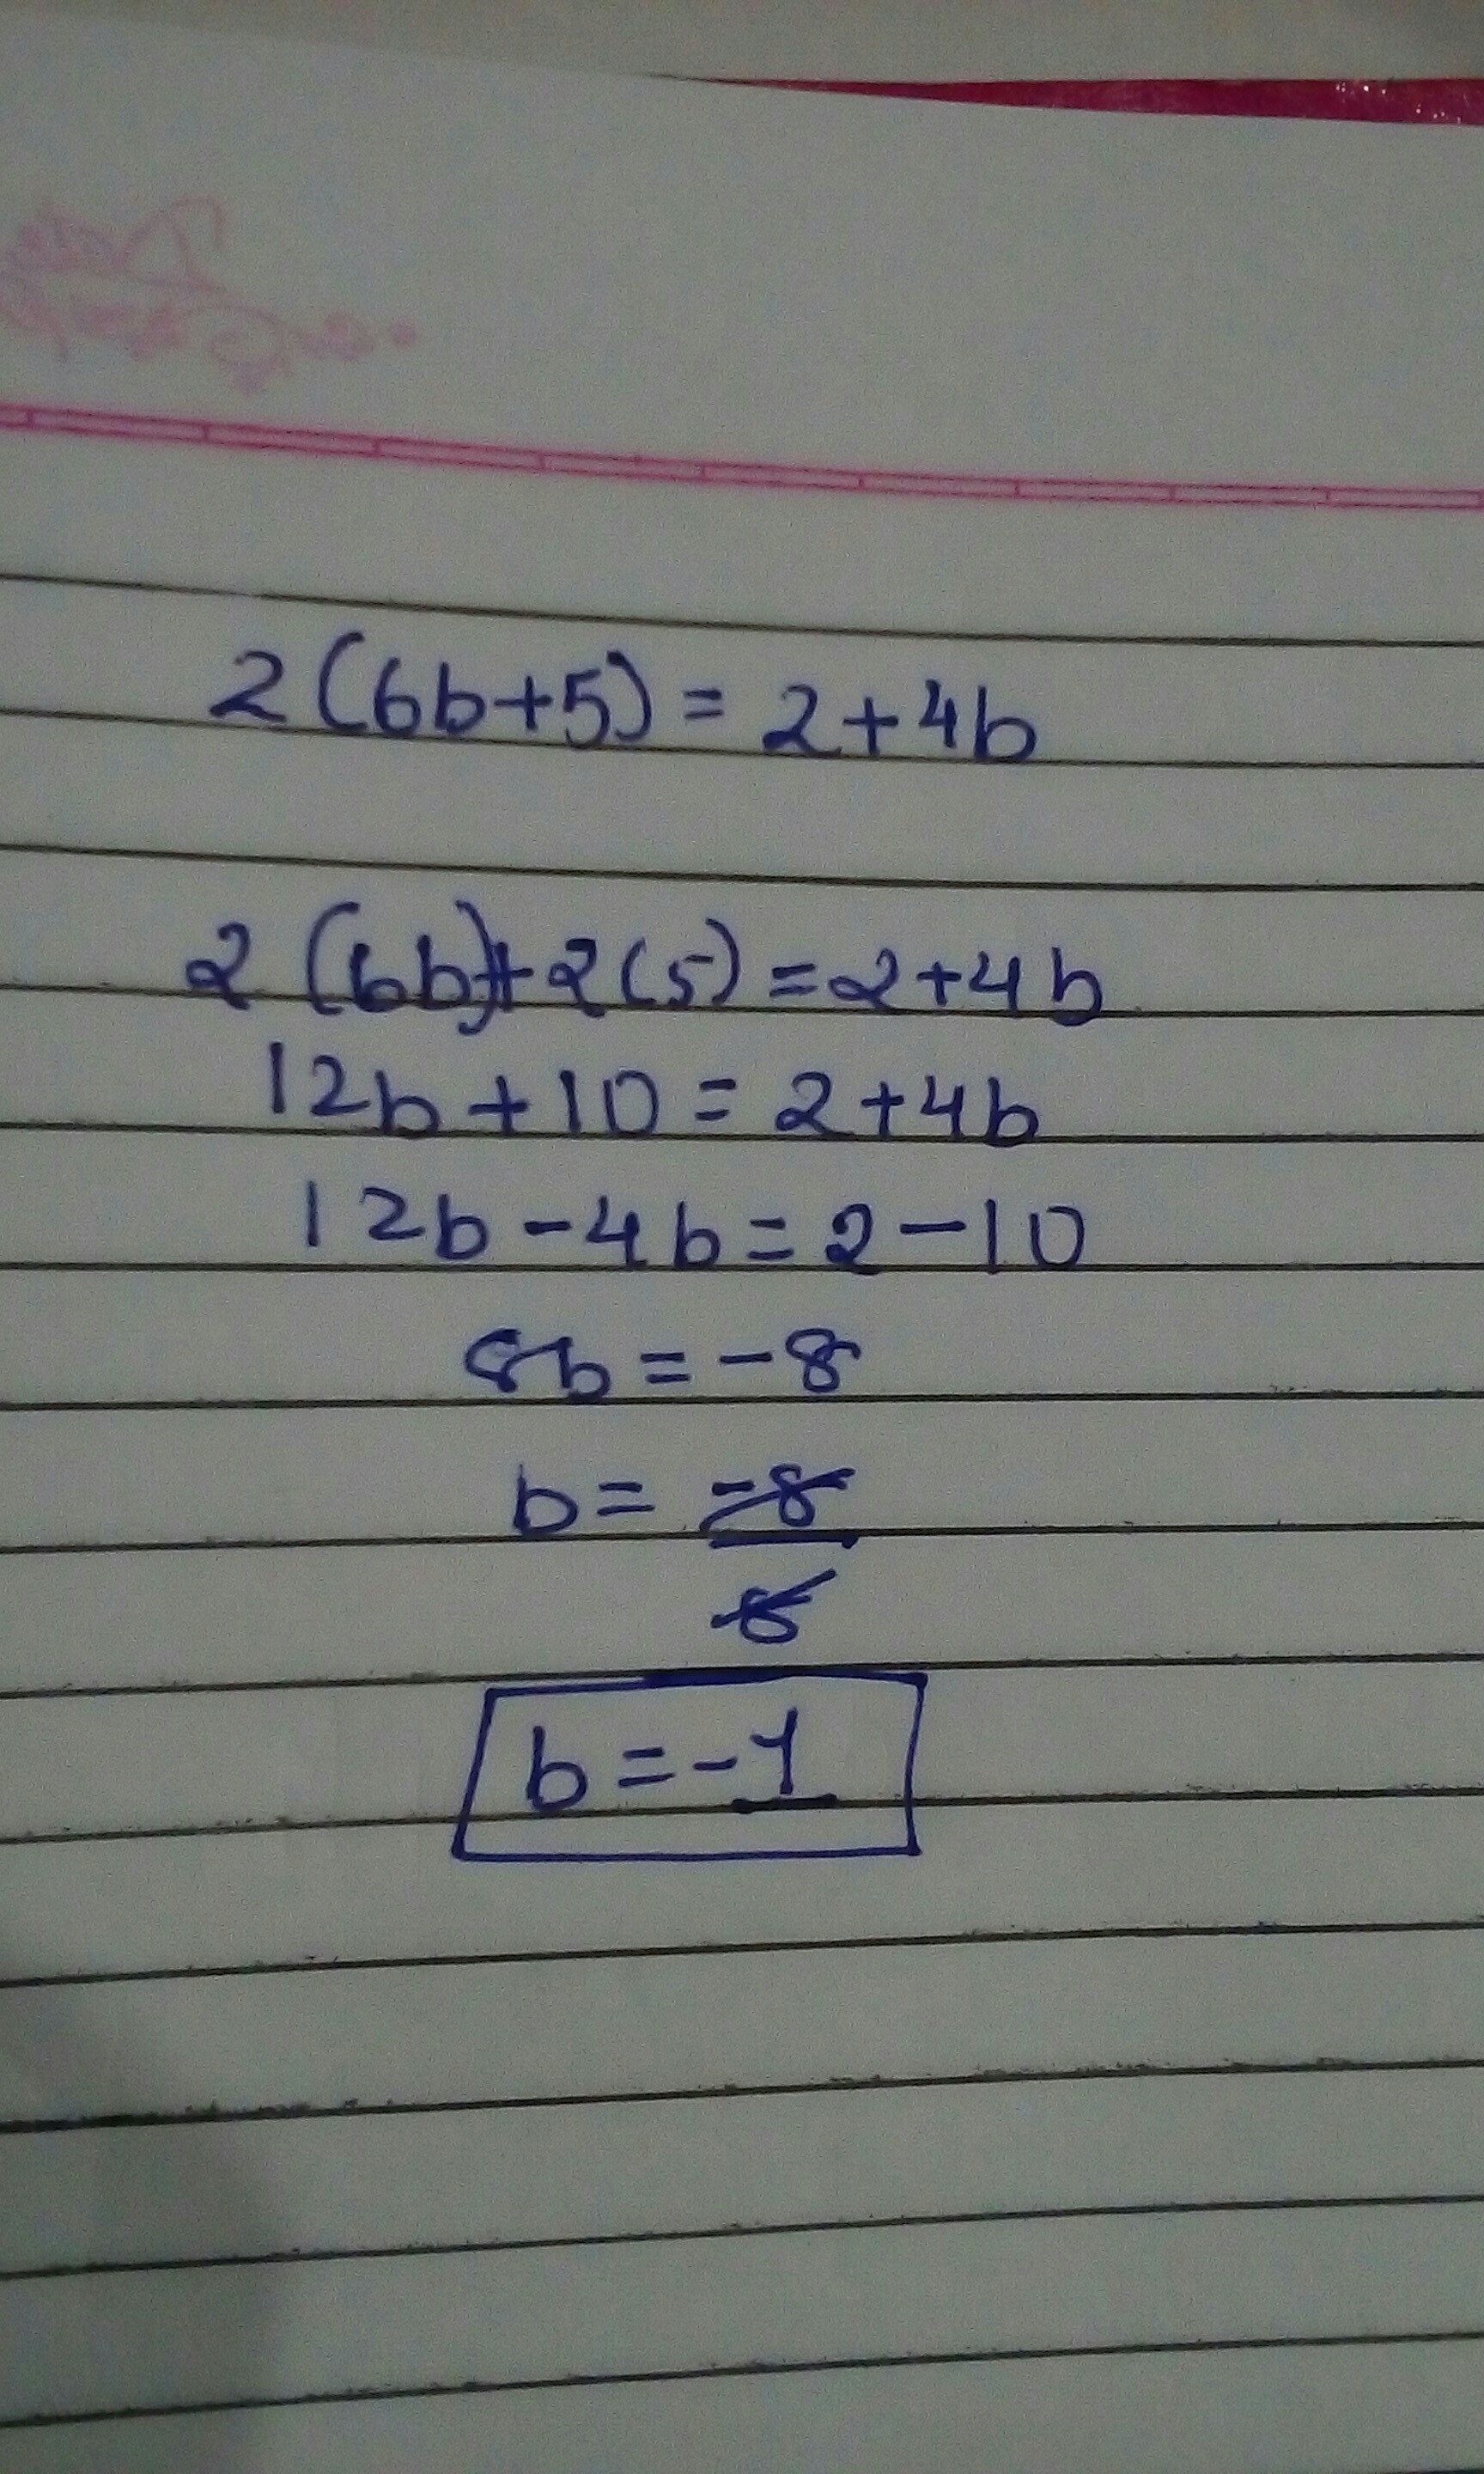 2(6b+5) = 2+4b
2(6b)+2(5) = 2+4b
12b+10 = 2+4b
12b-4b = 2-10
8b = -8
b = -8
8
b = -1